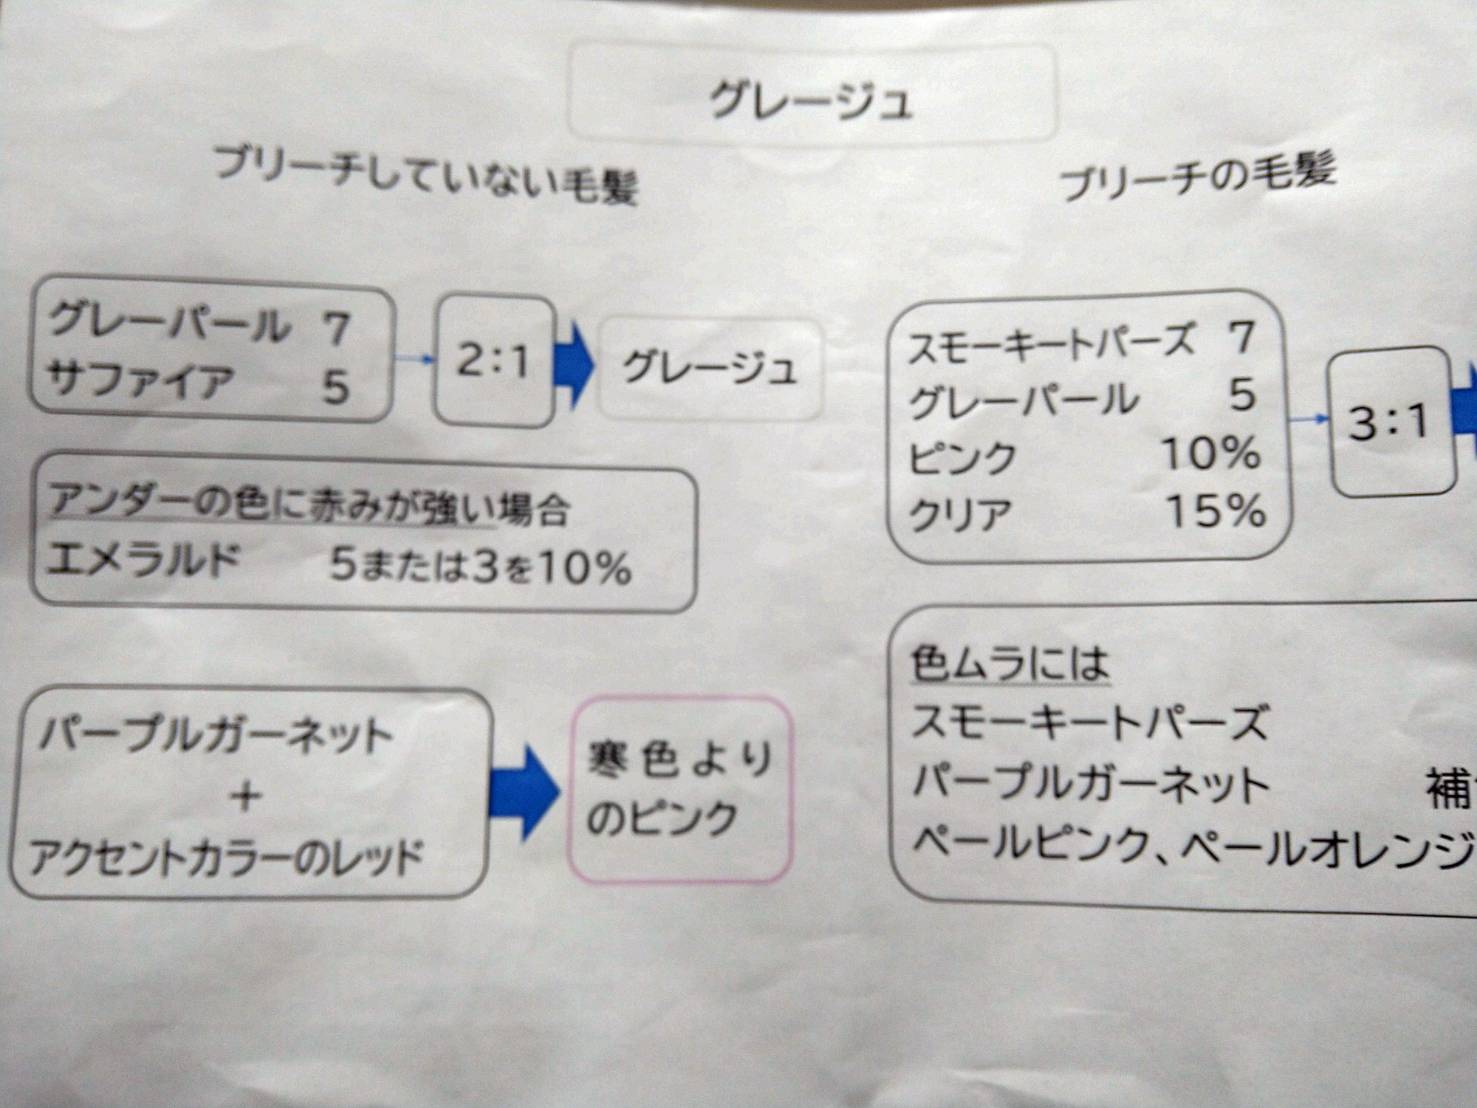 グレージュ
ブリーチしていない毛髪
グレーパール 7
サファイア 5
2:1
グレージュ
アンダーの色に赤みが強い場合
エメラルド 5または3を10%
パープルガーネット
+
アクセントカラーのレッド
寒色より
のピンク
ブリーチの毛髪
スモーキートパーズ 7
グレーパール 5
ピンク 10%
クリア 15%
3:1
色ムラには
スモーキートパーズ
パープルガーネット 補
ペールピンク、ペールオレンジ